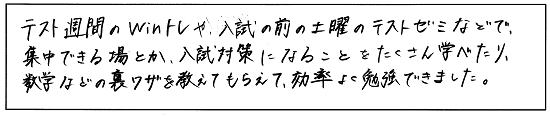 テスト週間のWinトレや、入試の前の土曜のテストゼミなどで、
集中できる場とか、入試対策になることをたくさん学べたり、
数学などの裏ワザを教えてもらえて、効率よく勉強できました。